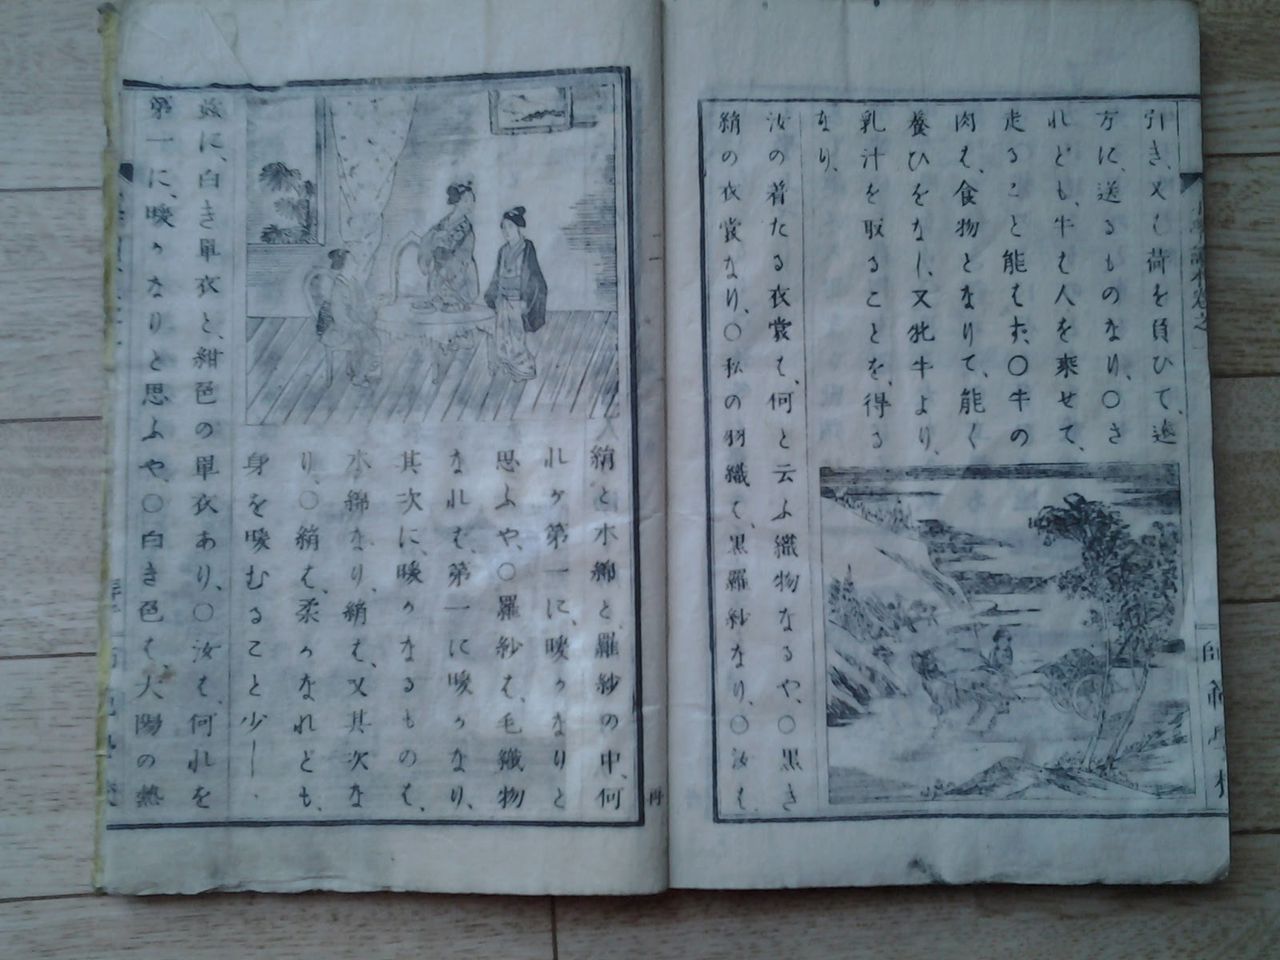 引き、又は荷を負ひて、遠
方に、送るものなり、〇さ
れども、牛は人を乗せて、
走ること能はす、〇牛の
肉は、食物となりて、能く
養ひをなし、又牝牛より、
乳汁を取ることを、得る
なり、
汝の着たる衣裳は、何と云ふ織物なるや、〇黒き
絹の衣裳なり、〇私の羽織は、黒羅紗なり、〇汝は、
絹と木綿と、羅紗の中、何
れが第一に、暖かなりと
思ふや、〇羅紗は、毛織物
なれば、第一に暖かなり、
其次に、暖かなるものは、
木綿なり、絹は、又其次な
り、〇絹は、柔かなれども、
身を暖むること少し、
茲に、白き單衣と、紺色の單衣あり、〇汝は、何れを
第一に、暖かなりと思ふや、〇白き色は、大陽の熱